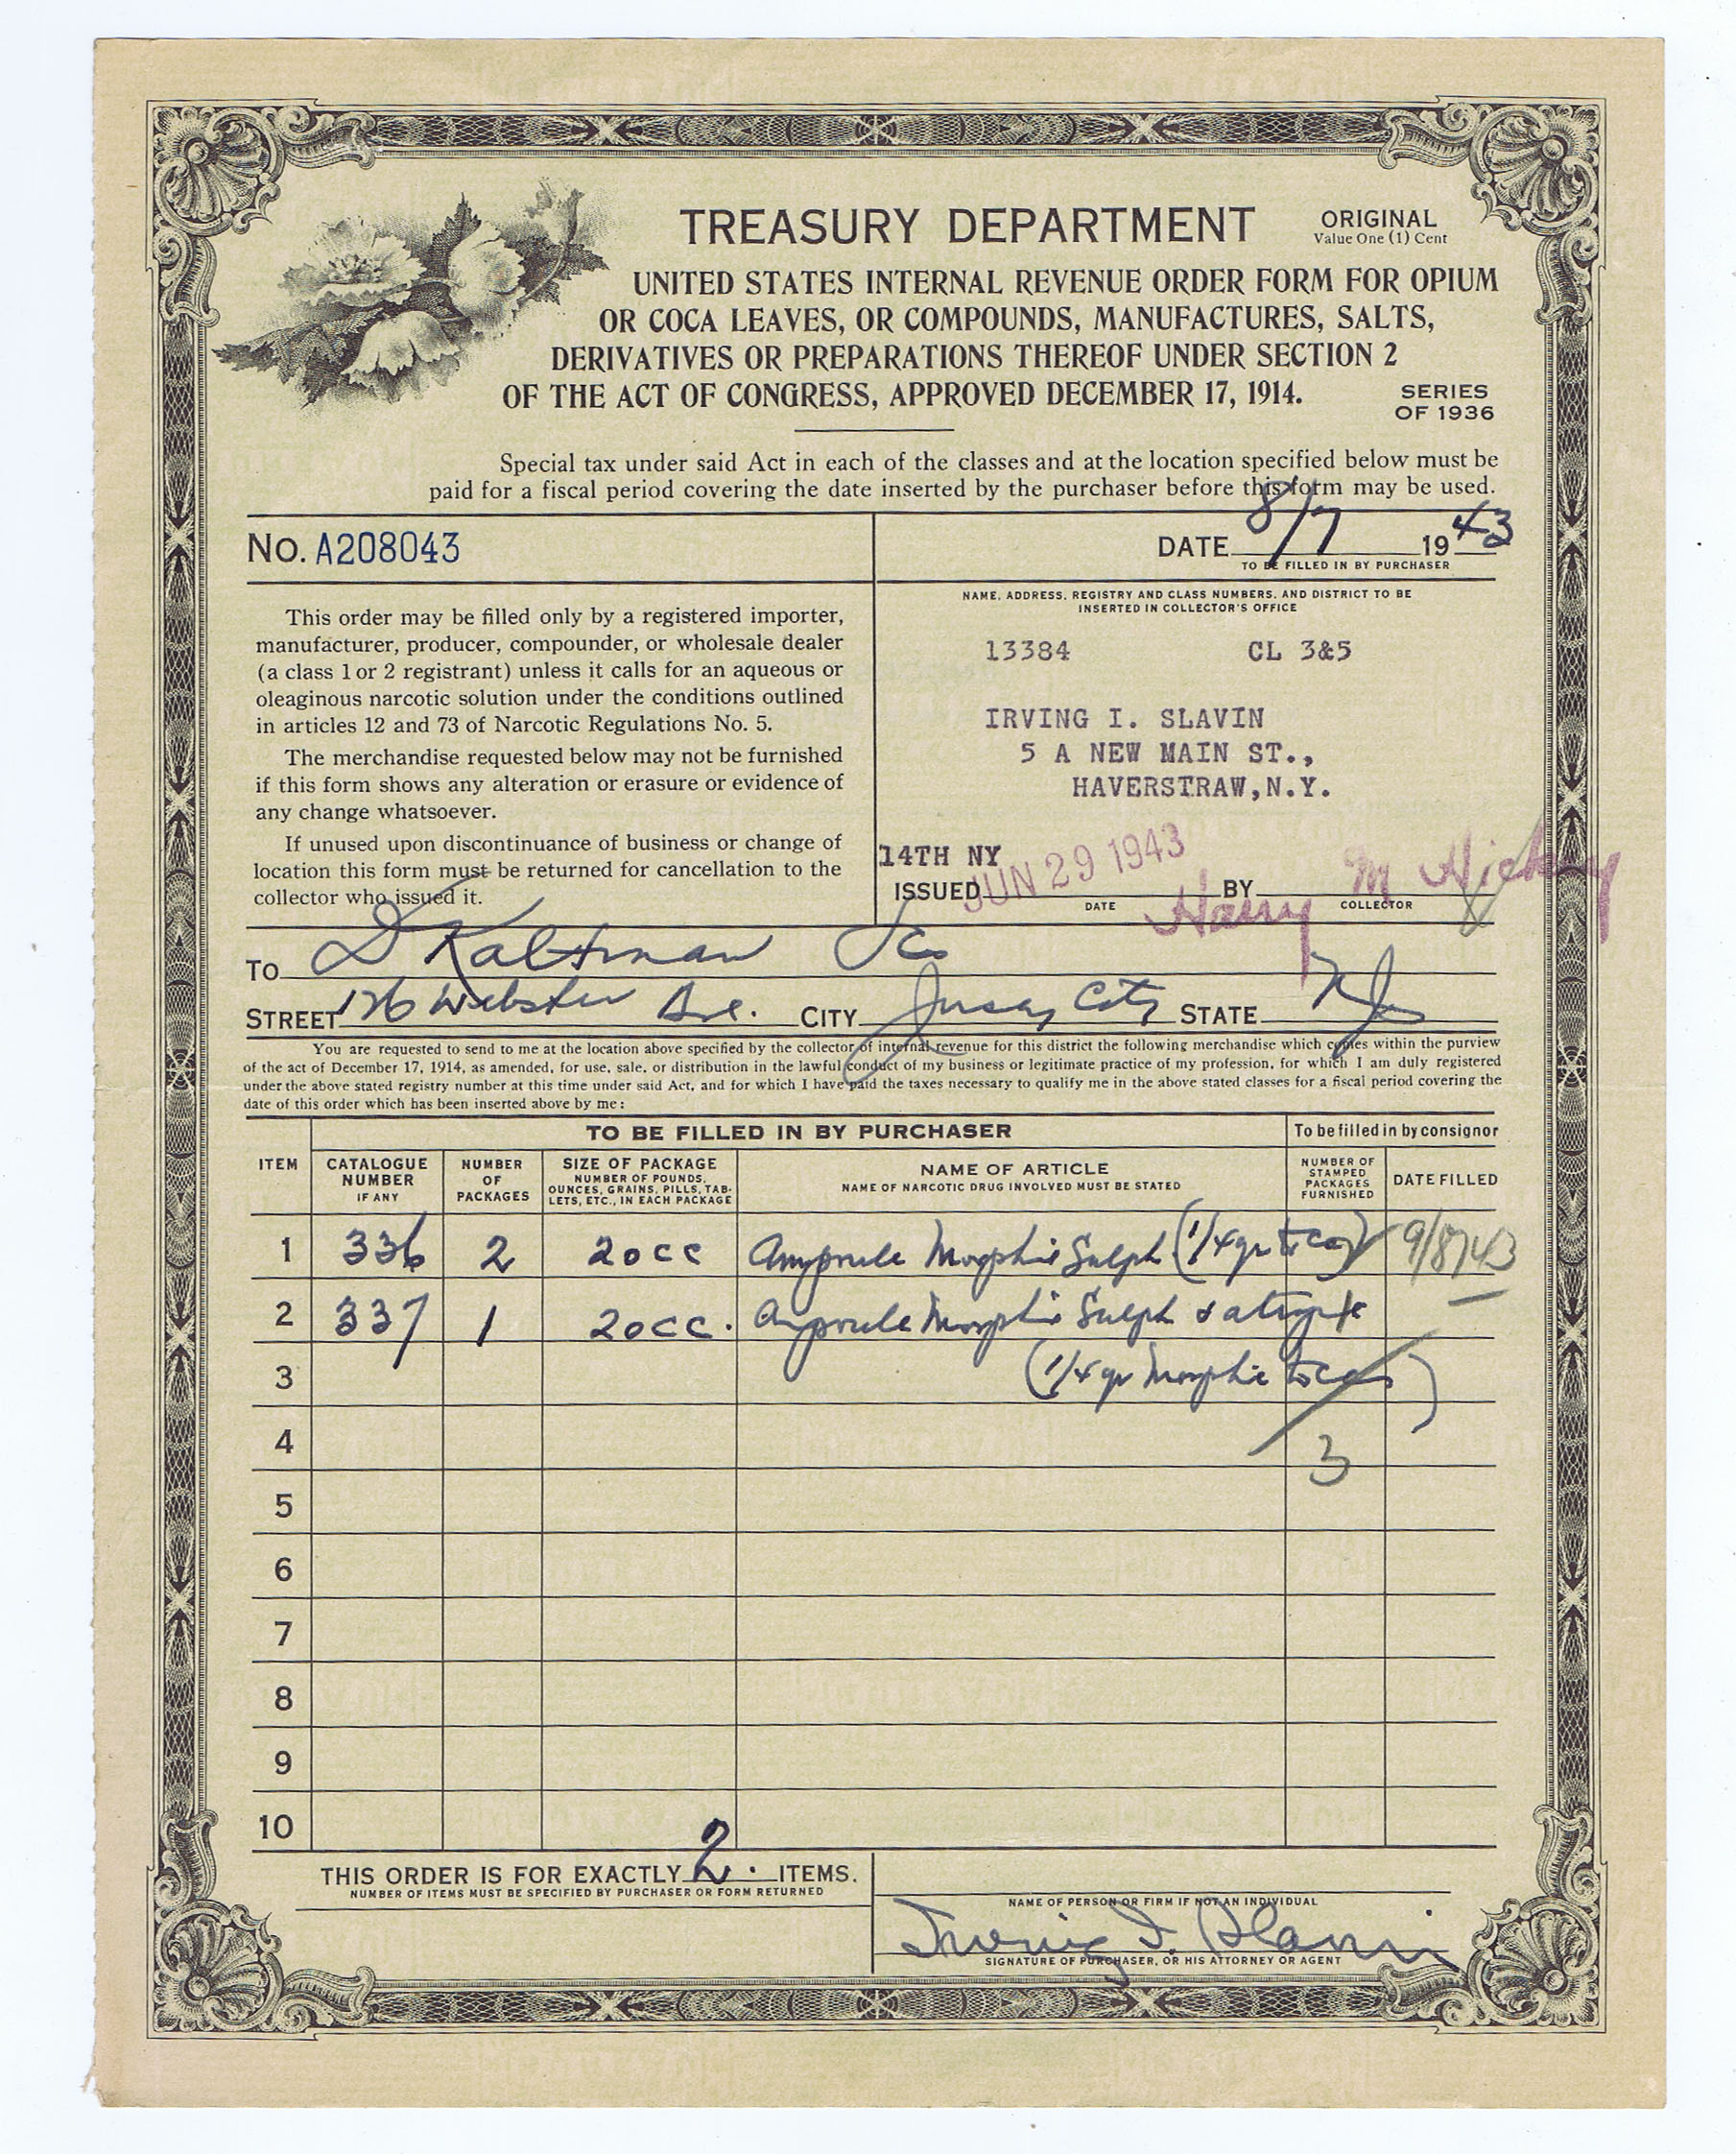 TREASURY DEPARTMENT
ORIGINAL
Value One (1) Cent
UNITED STATES INTERNAL REVENUE ORDER FORM FOR OPIUM
OR COCA LEAVES, OR COMPOUNDS, MANUFACTURES, SALTS,
DERIVATIVES OR PREPARATIONS THEREOF UNDER SECTION 2
OF THE ACT OF CONGRESS, APPROVED DECEMBER 17, 1914.
SERIES
OF 1936
Special tax under said Act in each of the classes and at the location specified below must be
paid for a fiscal period covering the date inserted by the purchaser before this form may be used.
No. A208043
DATE 8/7 1943
TO BE FILLED IN BY PURCHASER
This order may be filled only by a registered importer,
manufacturer, producer, compounder, or wholesale dealer
(a class 1 or 2 registrant) unless it calls for an aqueous or
oleaginous narcotic solution under the conditions outlined
in articles 12 and 73 of Narcotic Regulations No. 5.
The merchandise requested below may not be furnished
if this form shows any alteration or erasure or evidence of
any change whatsoever.
If unused upon discontinuance of business or change of
location this form must be returned for cancellation to the
collector who issued it.
NAME, ADDRESS, REGISTRY AND CLASS NUMBERS, AND DISTRICT TO BE
INSERTED IN COLLECTOR'S OFFICE
13384 CL 3&5
IRVING I. SLAVIN
5 A NEW MAIN ST.,
HAVERSTRAW,N.Y.
14TH NY
ISSUED JUN 29 1943 BY Harry M Hickey
DATE COLLECTOR
To D Kaltman & Co
STREET 126 Webster Ave. CITY Jersey City STATE NJ
You are requested to send to me at the location above specified by the collector of internal revenue for this district the following merchandise which comes within the purview
of the act of December 17, 1914, as amended, for use, sale, or distribution in the lawful conduct of my business or legitimate practice of my profession, for which I am duly registered
under the above stated registry number at this time under said Act, and for which I have paid the taxes necessary to qualify me in the above stated classes for a fiscal period covering the
date of this order which has been inserted above by me:
TO BE FILLED IN BY PURCHASER
To be filled in by consignor
ITEM
CATALOGUE
NUMBER
IF ANY
NUMBER
OF
PACKAGES
SIZE OF PACKAGE
NUMBER OF POUNDS,
OUNCES, GRAINS, PILLS, TAB-
LETS, ETC., IN EACH PACKAGE
NAME OF ARTICLE
NAME OF NARCOTIC DRUG INVOLVED MUST BE STATED
NUMBER OF
STAMPED
PACKAGES
FURNISHED
DATE FILLED
1 336 2 20cc Ampoule Morphie Sulph (1/4 gr to cc) 9/8/43
2 337 1 20cc. Ampoule Morphie Sulph & atropie
3 (1/4 gr Morphie to cc)
4 3
5
6
7
8
9
10
THIS ORDER IS FOR EXACTLY 2. ITEMS.
NUMBER OF ITEMS MUST BE SPECIFIED BY PURCHASER OR FORM RETURNED
NAME OF PERSON OR FIRM IF NOT AN INDIVIDUAL
Irving I. Slavin
SIGNATURE OF PURCHASER, OR HIS ATTORNEY OR AGENT